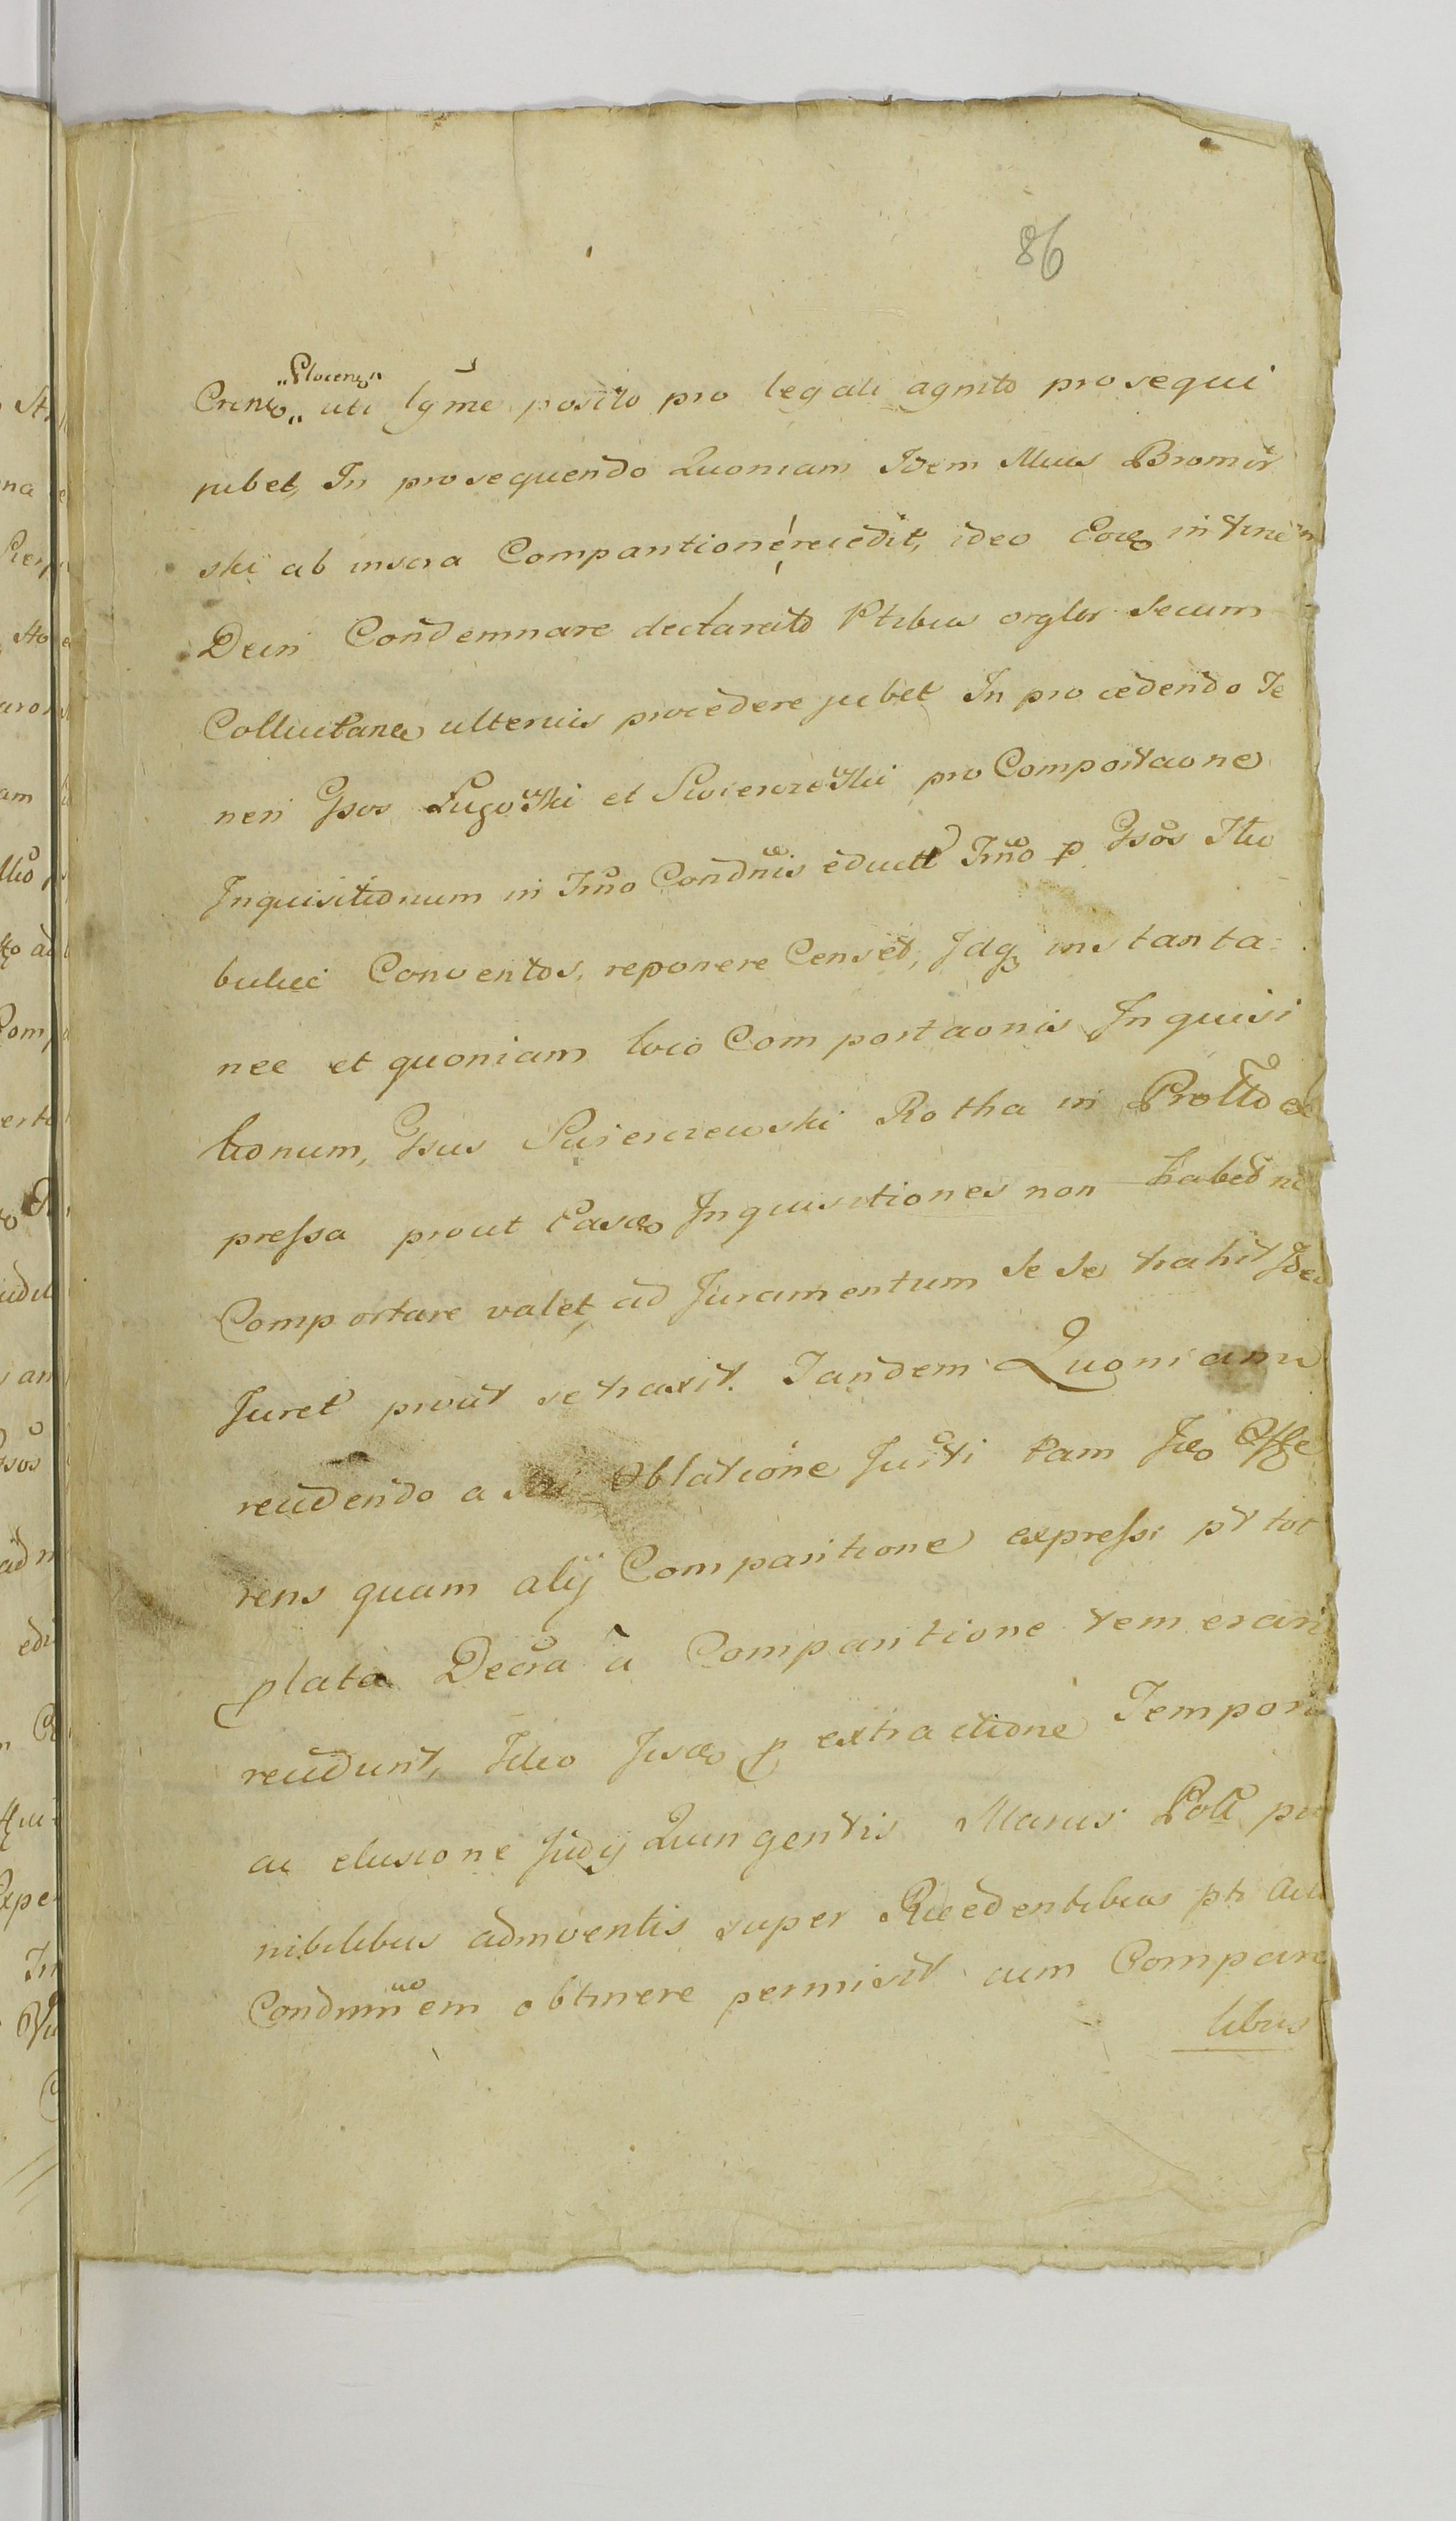 86
"Plocens"
Crens" uti lgme posito pro legali agnito prosequi
jubet, In prosequendo Quoniam Idem Mcus Bromir
ski ab inscra Comparitione recedit, ideo in
Decri Condemnare declarato Ptibus orgler secum
Colluctane ulterius procedere jubet In procedendo Te
neri Gsos Lugowski et Swierczewski pro Comportaone
Inquisitionum in Trno Condnis Trno p Gsos
buluci Conventos, reponere Censet, Idq3 instanta=
nee et quoniam loco Comportaonis Inquisi
tionum, Gsus Swierczewski Rotha in Protlo ex
pressa prout Easdo Inquisitiones non habet ne
Comportare valet, ad Juramentum se se trahit Ideo
Juret prout se traxit. Tandem Quoniam
recedendo a sui Oblatione Jurti tam Offe
rens quam alij Comparitione expressi pt tot
plata Decra a Comparitione temerari
recedunt, Ideo p extractione Tempori
ac elusione Judij Quingentis Marcis Poll pu
nibilibus adinventis super Recedentibus pti
Condnnem obtinere permisit cum Compare
tibus